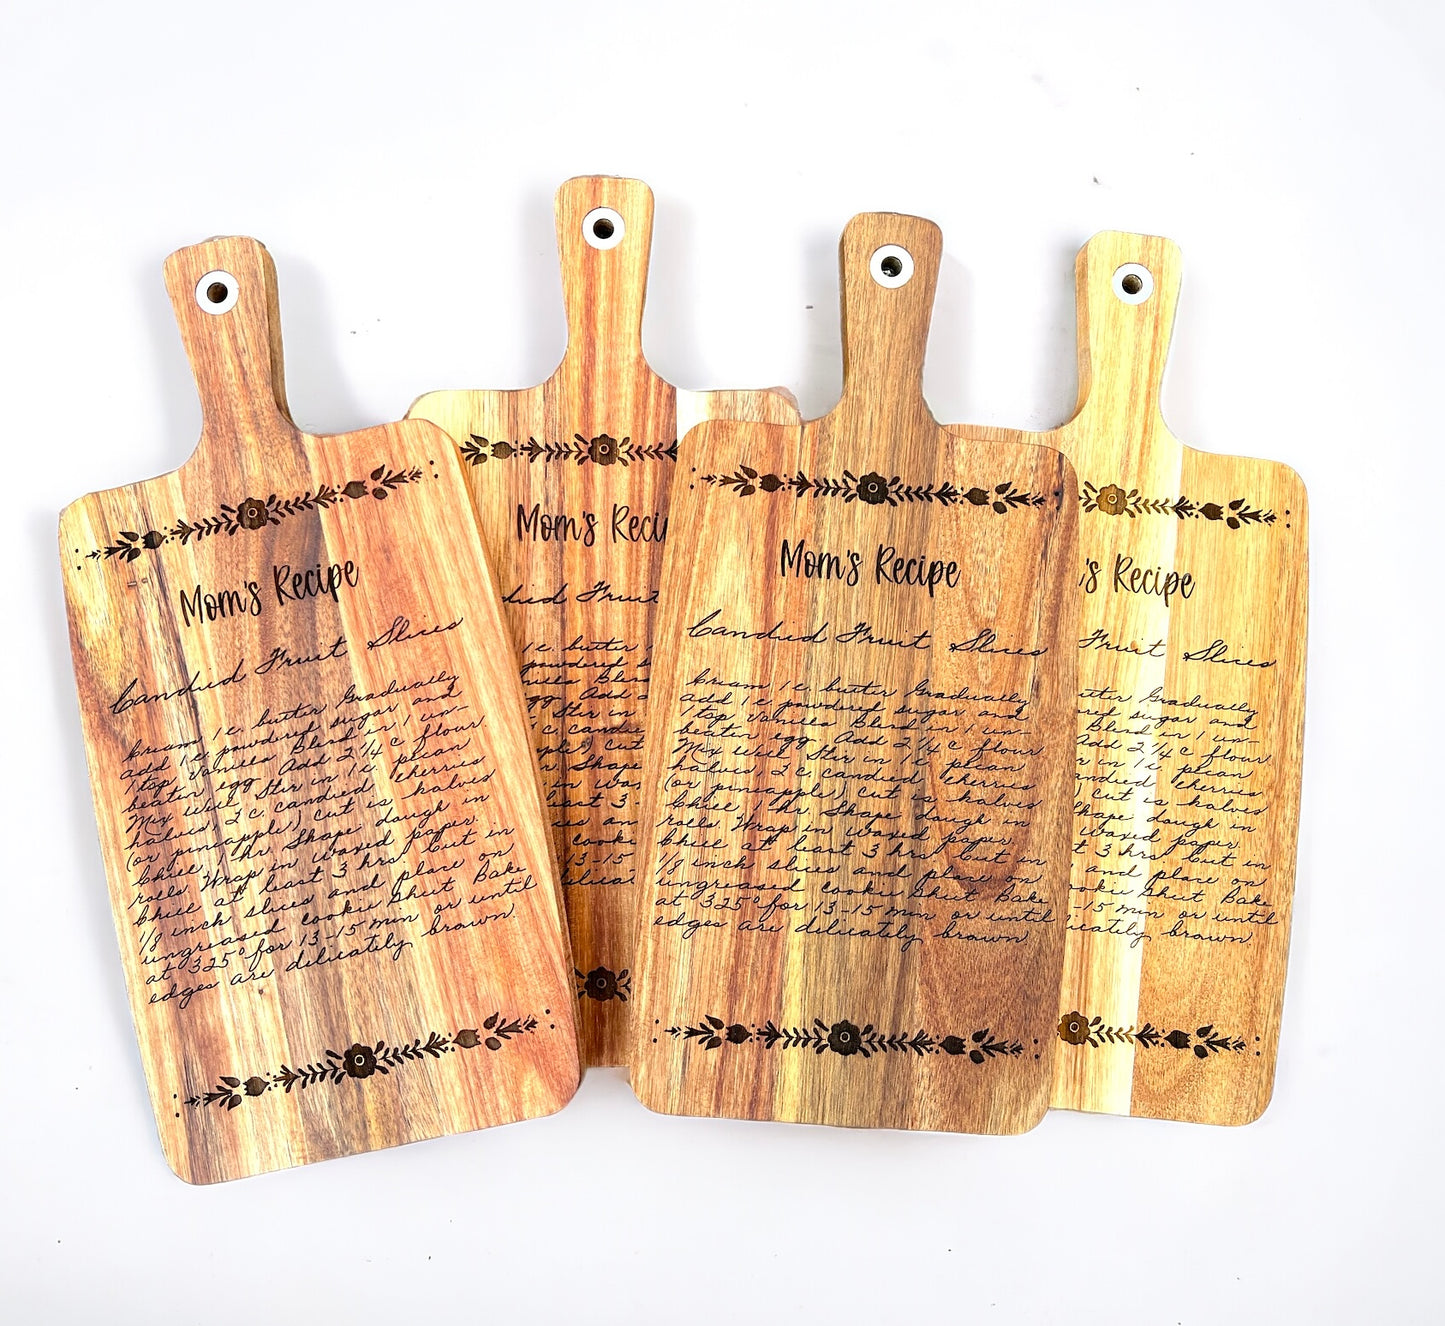 Mom's Recipe
Candied Fruit Slices
Cream 1 c. butter Gradually
add 1 c powdered sugar and
1 tsp vanilla Blend in 1 un-
beaten egg Add 2 1/4 c flour
Mix well Stir in 1 c pecan
halves, 2 c. candied cherries
(or pineapple) cut in halves
Chill 1 hr Shape dough in
rolls Wrap in waxed paper.
Chill at least 3 hrs. Cut in
1/8 inch slices and place on
ungreased cookie sheet Bake
at 325° for 13-15 min or until
edges are delicately brown.
Mom's Reci
Fruit
1 c. butter
powdered s
Blen
Add
Stir in
c. candie
cut
Shape
in wax
least 3
an
cook
13-15
Mom's Recipe
Candied Fruit Slices
Cream 1 c. butter Gradually
add 1 c powdered sugar and
1 tsp vanilla Blend in 1 un-
beaten egg Add 2 1/4 c flour
Mix well Stir in 1 c pecan
halves, 2 c. candied cherries
(or pineapple) cut in halves
Chill 1 hr Shape dough in
rolls Wrap in waxed paper.
Chill at least 3 hrs. Cut in
1/8 inch slices and place on
ungreased cookie sheet Bake
at 325° for 13-15 min or until
edges are delicately brown.
's Recipe
Fruit Slices
utter Gradually
ed sugar and
Blend in 1 un-
Add 2 1/4 c flour
in 1 c pecan
andied cherries
cut in halves
Shape dough in
waxed paper.
t 3 hrs. Cut in
and place on
ookie sheet Bake
-15 min or until
icately brown.